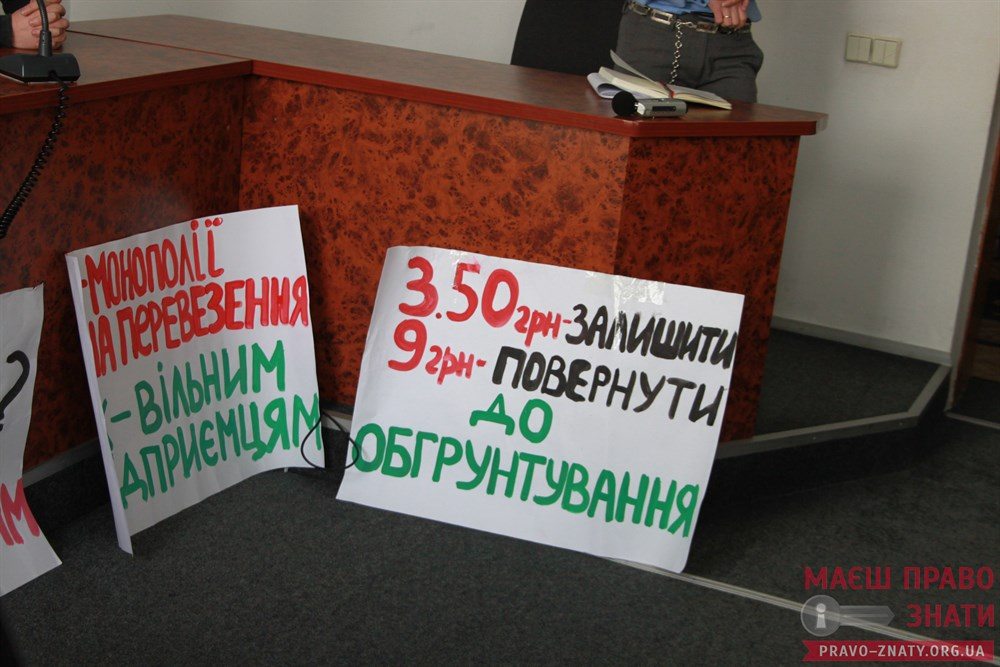 -МОНОПОЛІЇ
НА ПЕРЕВЕЗЕННЯ
– ВІЛЬНИМ
ДПРИЄМЦЯМ
3.50 грн-ЗАЛИШИТИ
9 грн- ПОВЕРНУТИ
ДО
ОБГРУНТУВАННЯ
?
ЯМ
МАЄШ ПРАВО
ЗНАТИ
PRAVO-ZNATY.ORG.UA